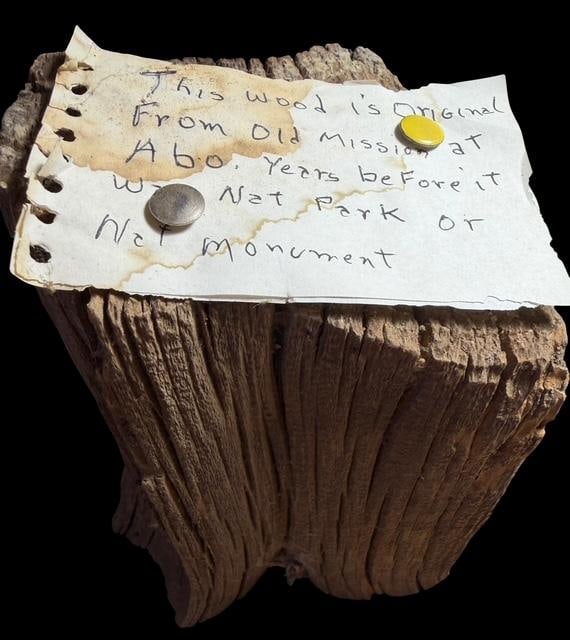 This wood is Original
From Old Mission at
Abo. Years before it
Was Nat Park or
Nat monument